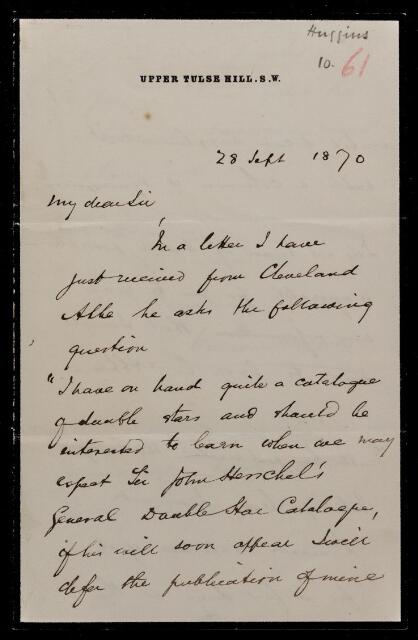 Huggins
10. 61
UPPER TULSE HILL. S.W.
28 Sept 1870
My dear Sir,
In a letter I have
just received from Cleveland
Abbe he asks the following
question
"I have on hand quite a catalogue
of double stars and should be
interested to learn when we may
expect Sir John Herschel's
General Double Star Catalogue,
if his will soon appear I will
defer the publication of mine